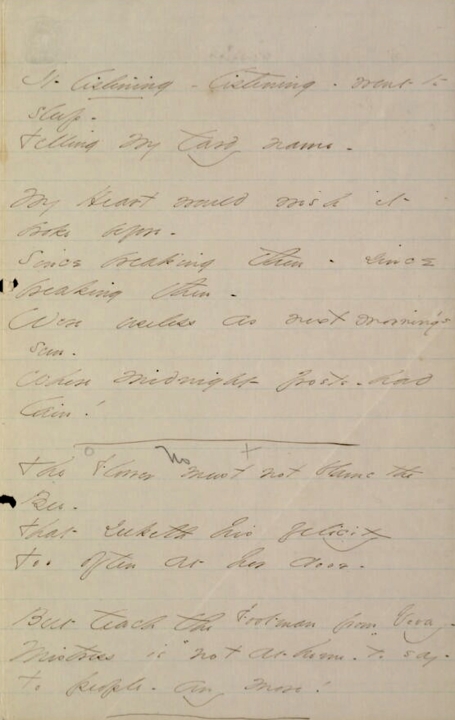 It listening - listening - went to
sleep -
telling my tardy name -
My Heart would wish it
broke before -
Since breaking then - since
breaking then -
Were useless as next morning's
sun -
Where midnight frosts - had
lain!
o No +
The Flower must not blame the
Bee -
that seeketh his felicity
too often at her door -
But teach the Footman from Vevay -
Mistress is "not at home" - to say -
to people - any more!